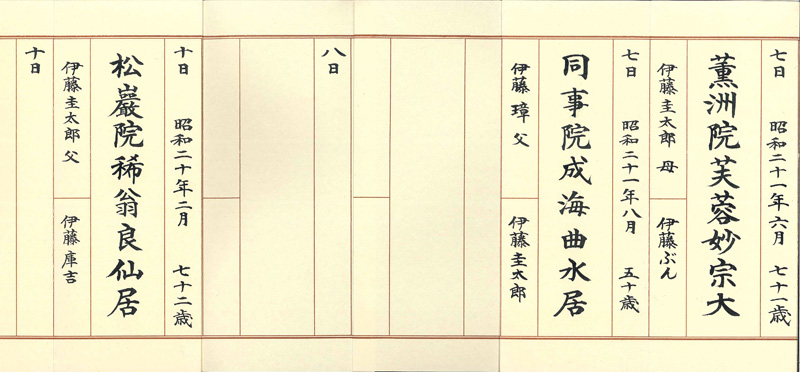 七日 昭和二十一年六月 七十一歳
薫洲院芙蓉妙宗大
伊藤圭太郎 母 伊藤ぶん
七日 昭和二十一年八月 五十歳
同事院成海曲水居
伊藤璋 父 伊藤圭太郎
八日
十日 昭和二十年二月 七十二歳
松巖院稀翁良仙居
伊藤圭太郎 父 伊藤庫吉
十日